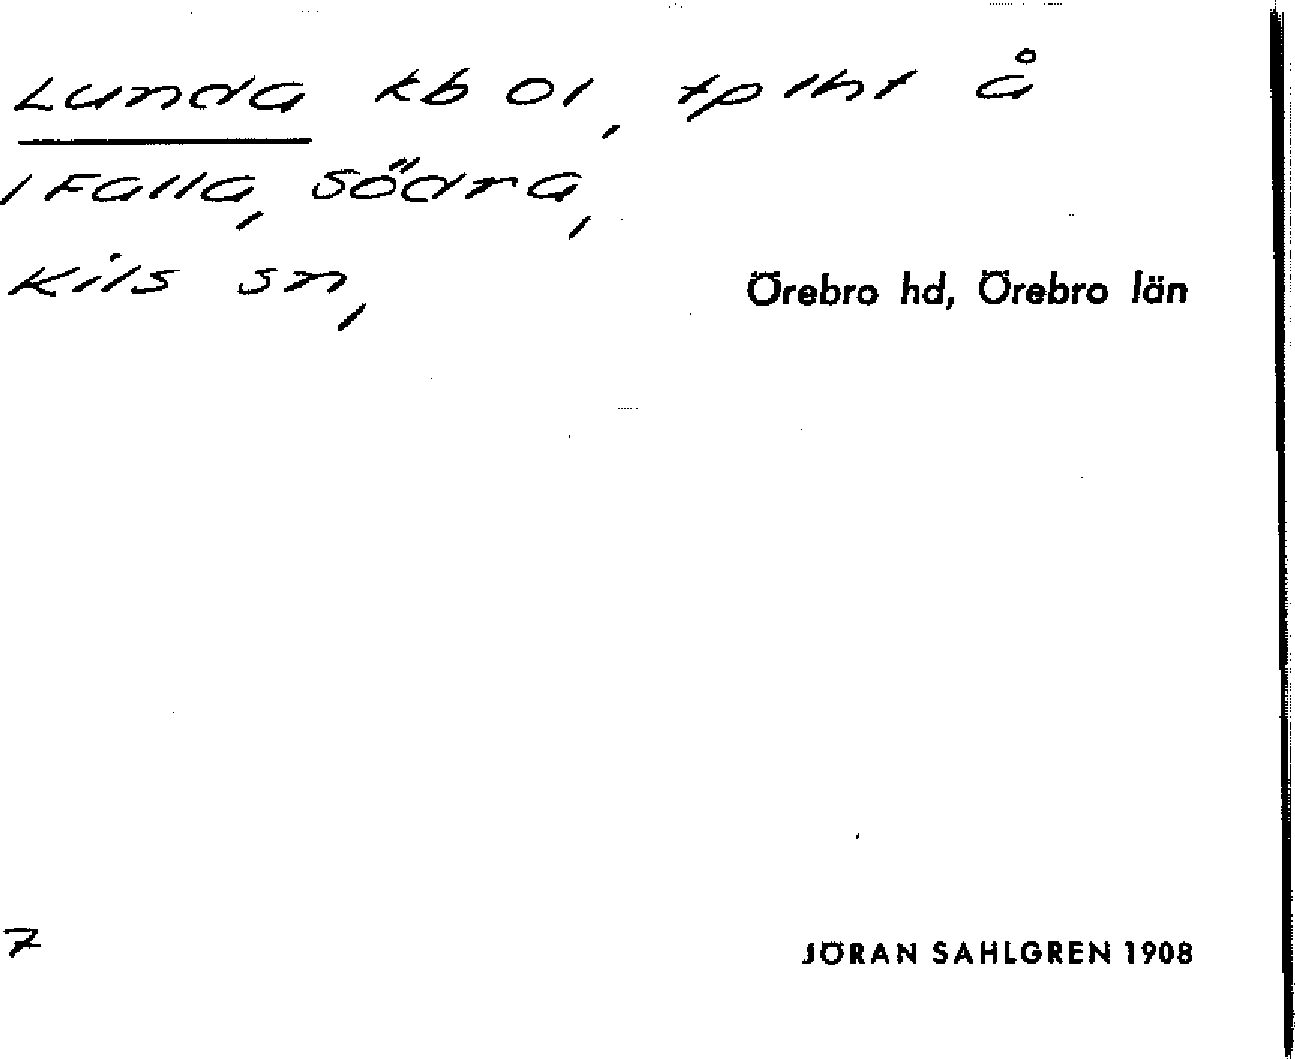 Lunda kb 01, tplht å
1 Falla, Södra,
Kils sn,
Örebro hd, Örebro län
7
JÖRAN SAHLGREN 1908